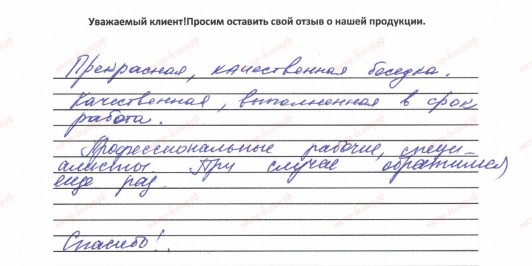 Уважаемый клиент!Просим оставить свой отзыв о нашей продукции.
Прекрасная, качественная беседка.
Качественная, выполненная в срок
работа.
Профессиональные рабочие, специ-
алисты. При случае обратимся
еще раз.
Спасибо!